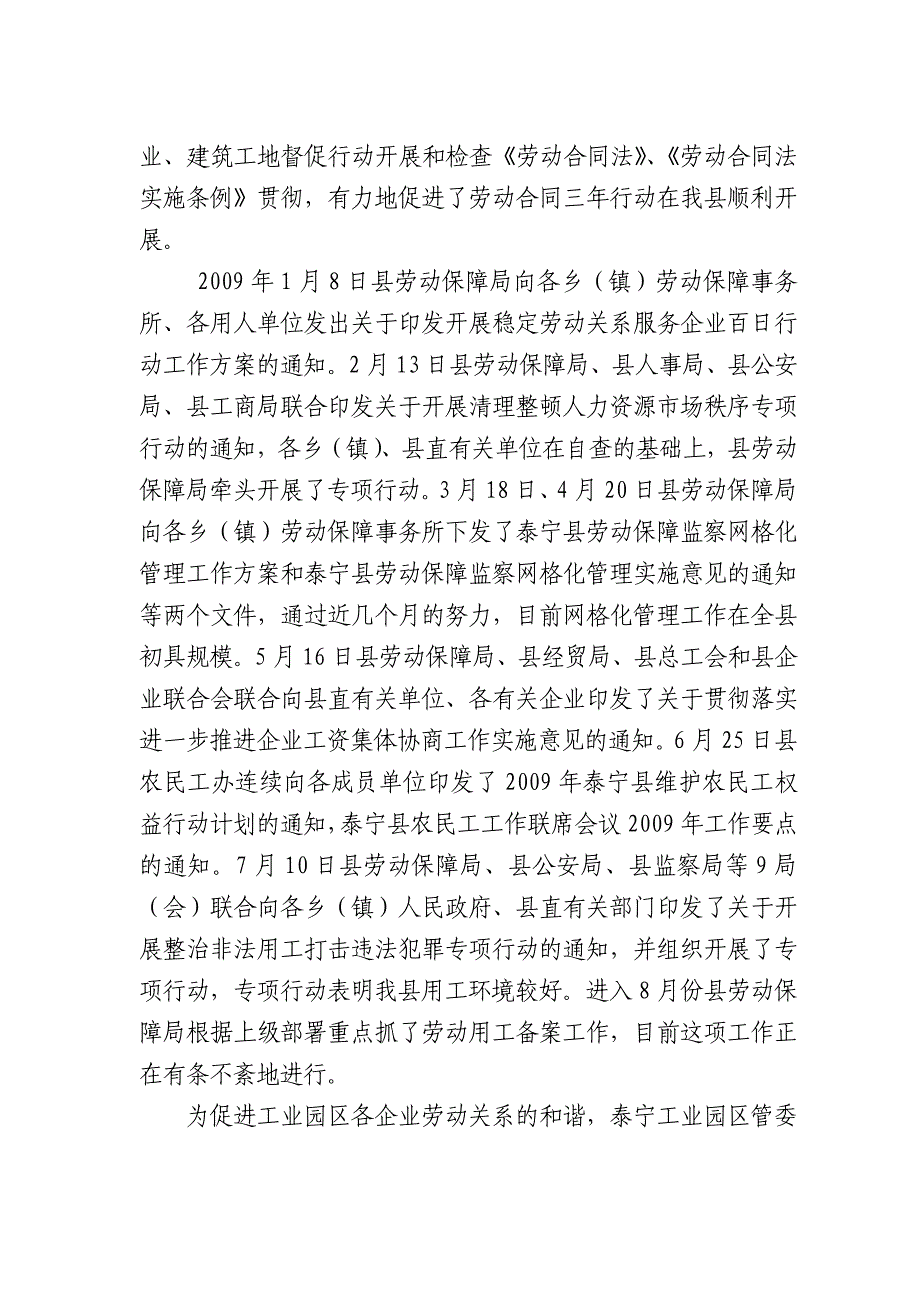 业、建筑工地督促行动开展和检查《劳动合同法》、《劳动合同法
实施条例》贯彻，有力地促进了劳动合同三年行动在我县顺利开
展。
2009 年 1 月 8 日县劳动保障局向各乡（镇）劳动保障事务
所、各用人单位发出关于印发开展稳定劳动关系服务企业百日行
动工作方案的通知。2 月 13 日县劳动保障局、县人事局、县公安
局、县工商局联合印发关于开展清理整顿人力资源市场秩序专项
行动的通知，各乡（镇）、县直有关单位在自查的基础上，县劳动
保障局牵头开展了专项行动。3 月 18 日、4 月 20 日县劳动保障局
向各乡（镇）劳动保障事务所下发了泰宁县劳动保障监察网格化
管理工作方案和泰宁县劳动保障监察网格化管理实施意见的通知
等两个文件，通过近几个月的努力，目前网格化管理工作在全县
初具规模。5 月 16 日县劳动保障局、县经贸局、县总工会和县企
业联合会联合向县直有关单位、各有关企业印发了关于贯彻落实
进一步推进企业工资集体协商工作实施意见的通知。6 月 25 日县
农民工办连续向各成员单位印发了 2009 年泰宁县维护农民工权
益行动计划的通知，泰宁县农民工工作联席会议 2009 年工作要点
的通知。7 月 10 日县劳动保障局、县公安局、县监察局等 9 局
（会）联合向各乡（镇）人民政府、县直有关部门印发了关于开
展整治非法用工打击违法犯罪专项行动的通知，并组织开展了专
项行动，专项行动表明我县用工环境较好。进入 8 月份县劳动保
障局根据上级部署重点抓了劳动用工备案工作，目前这项工作正
在有条不紊地进行。
为促进工业园区各企业劳动关系的和谐，泰宁工业园区管委